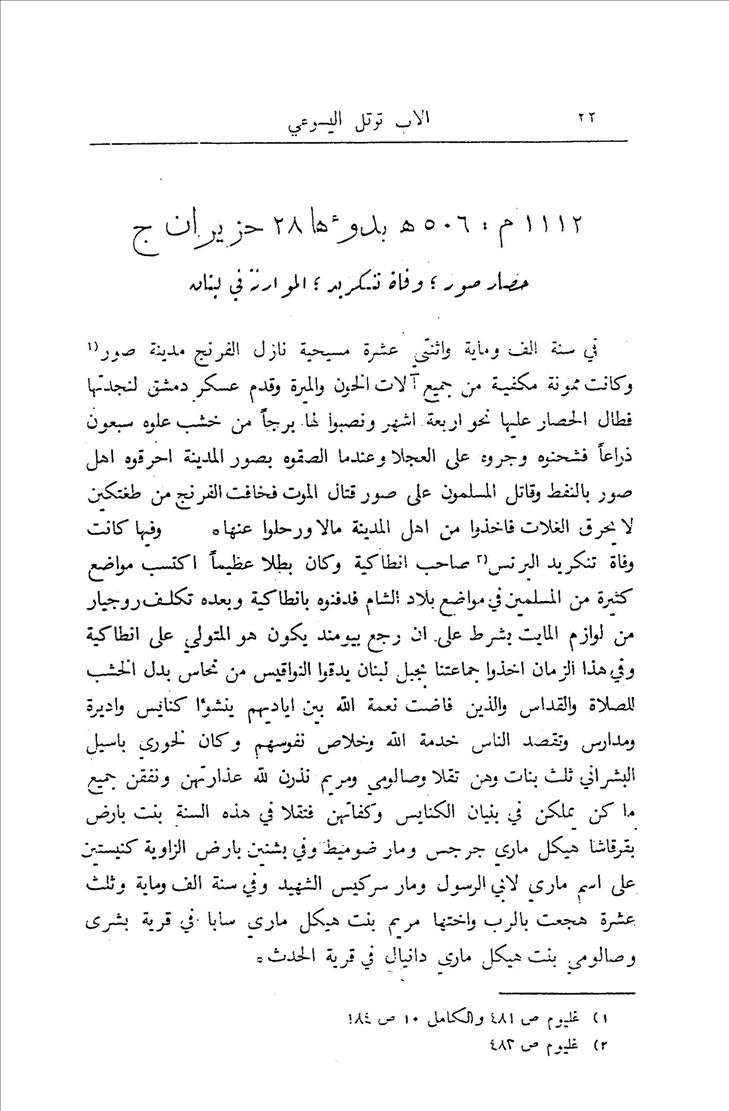 ٢٢ الاب توتل اليسوعي
١١١٢ م : ٥٠٦ ه بدوءها ٢٨ حزيران ج
حصار صور ؛ وفاة تنكريد ؛ الموارنة في لبنان
في سنة الف وماية واثنتي عشرة مسيحية نازل الفرنج مدينة صور(١
وكانت ممونة مكفية من جميع آلات الخون والميرة وقدم عسكر دمشق لنجدتها
فطال الحصار عليها نحو اربعة اشهر ونصبوا لها برجاً من خشب علوه سبعون
ذراعاً فشحنوه وجروه على العجلا وعندما الصقوه بصور المدينة احرقوه اهل
صور بالنفط وقاتل المسلمون على صور قتال الموت فخافت الفرنج من طغتكين
لا يحرق الغلات فاخذوا من اهل المدينة مالا ورحلوا عنها ٠ وفيها كانت
وفاة تنكريد البرنس(٢ صاحب انطاكية وكان بطلا عظيماً اكتسب مواضع
كثيرة من المسلمين في مواضع بلاد الشام فدفنوه بانطاكية وبعده تكلف روجيار
من لوازم المايت بشرط على ان رجع بيومند يكون هو المتولي على انطاكية
وفي هذا الزمان اخذوا جماعتنا بجبل لبنان يدقوا النواقيس من نحاس بدل الخشب
للصلاة والقداس والذين فاضت نعمة الله بين اياديهم ينشوًا كنايس واديرة
ومدارس وتقصد الناس خدمة الله وخلاص نفوسهم وكان لخوري باسيل
البشراني ثلث بنات وهن تقلا وصالومي ومريم نذرن لله عذارتهن ونفقن جميع
ما كن يملكن في بنيان الكنايس وكفاتهن فتقلا في هذه السنة بنت بارض
بقرقاشا هيكل ماري جرجس ومار ضوميط وفي بشنين بارض الزاوية كنيستين
على اسم ماري لابي الرسول ومار سركيس الشهيد وفي سنة الف وماية وثلث
عشرة هجعت بالرب واختها مريم بنت هيكل ماري سابا في قرية بشرى
وصالومي بنت هيكل ماري دانيال في قرية الحدث ٠
١) غليوم ص ٤٨١ والكامل ١٠ ص ٤٨٤
٢) غليوم ص ٤٨٣